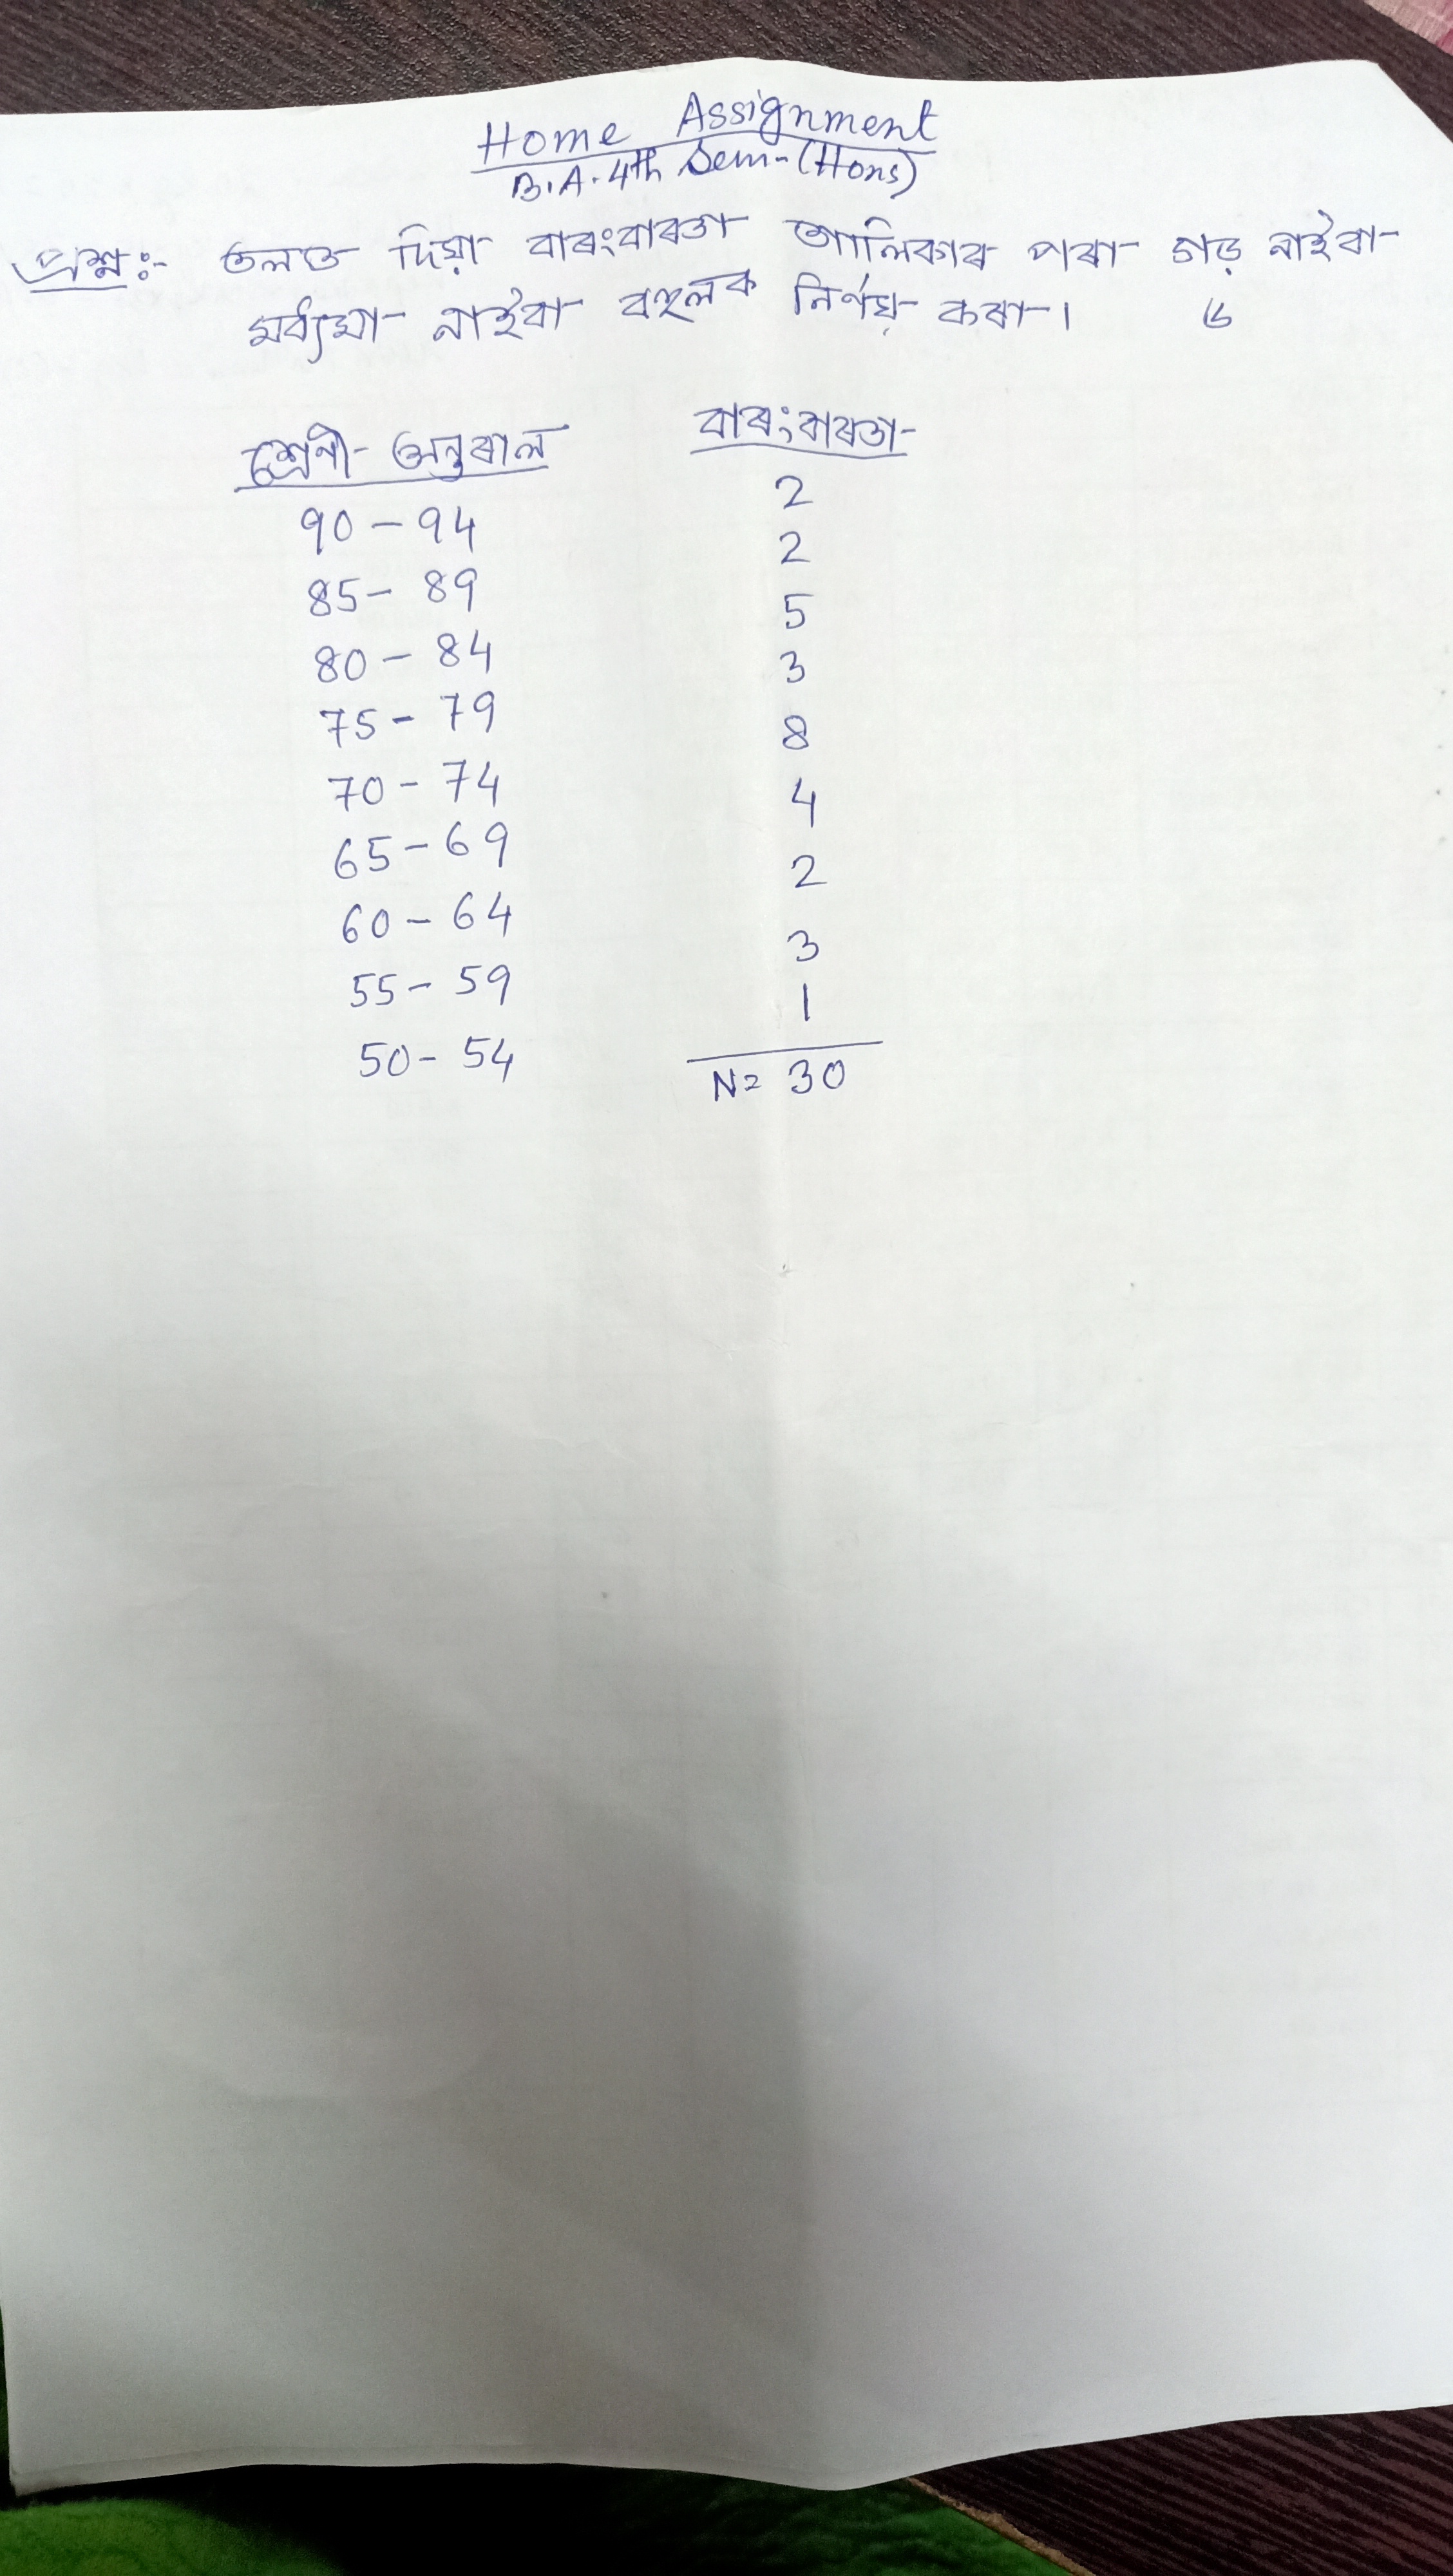 Home Assignment
B.A. 4th Sem-(Hons)
প্ৰশ্নঃ- তলত দিয়া বাৰংবাৰতা তালিকাৰ পৰা গড় নাইবা
মধ্যমা নাইবা বহুলক নিৰ্ণয় কৰা। ৬
শ্ৰেণী অন্তৰাল বাৰংবাৰতা
90 - 94 2
85 - 89 2
80 - 84 5
75 - 79 3
70 - 74 8
65 - 69 4
60 - 64 2
55 - 59 3
50 - 54 1
N= 30